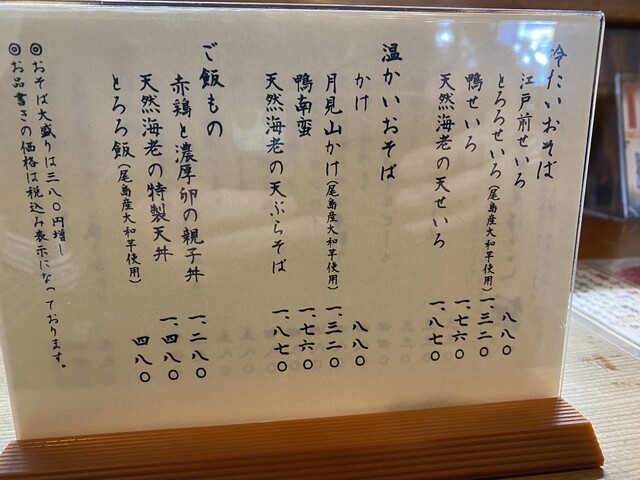 冷たいおそば
江戸前せいろ 八八〇
とろろせいろ(尾島産大和芋使用) 一、三二〇
鴨せいろ 一、七六〇
天然海老の天せいろ 一、八七〇
温かいおそば
かけ 八八〇
月見山かけ(尾島産大和芋使用) 一、三二〇
鴨南蛮 一、七六〇
天然海老の天ぷらそば 一、八七〇
ご飯もの
赤鶏と濃厚卵の親子丼 一、二八〇
天然海老の特製天丼 一、四八〇
とろろ飯(尾島産大和芋使用) 四八〇
◎おそば大盛りは三八〇円増し
◎お品書きの価格は税込み表示になっております。